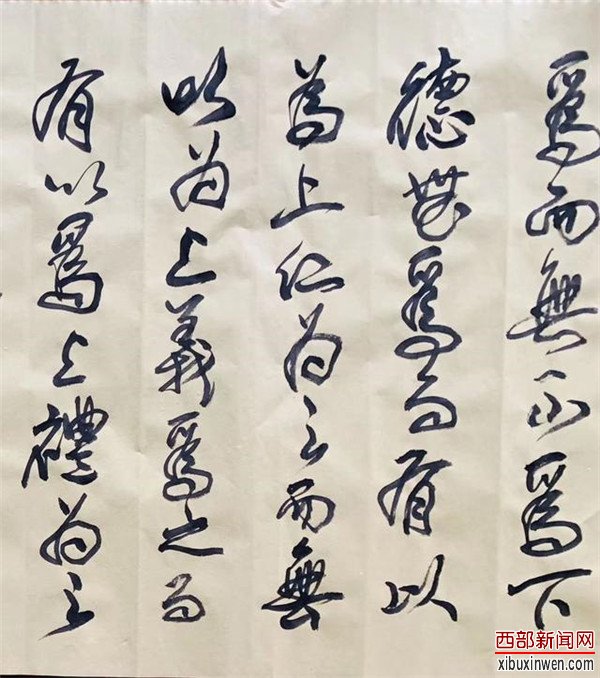 爲而無不爲下
德無爲而有以
為上仁为之而無
以为上義爲之而
有以爲上禮为之
西部新闻网
xibuxinwen.com